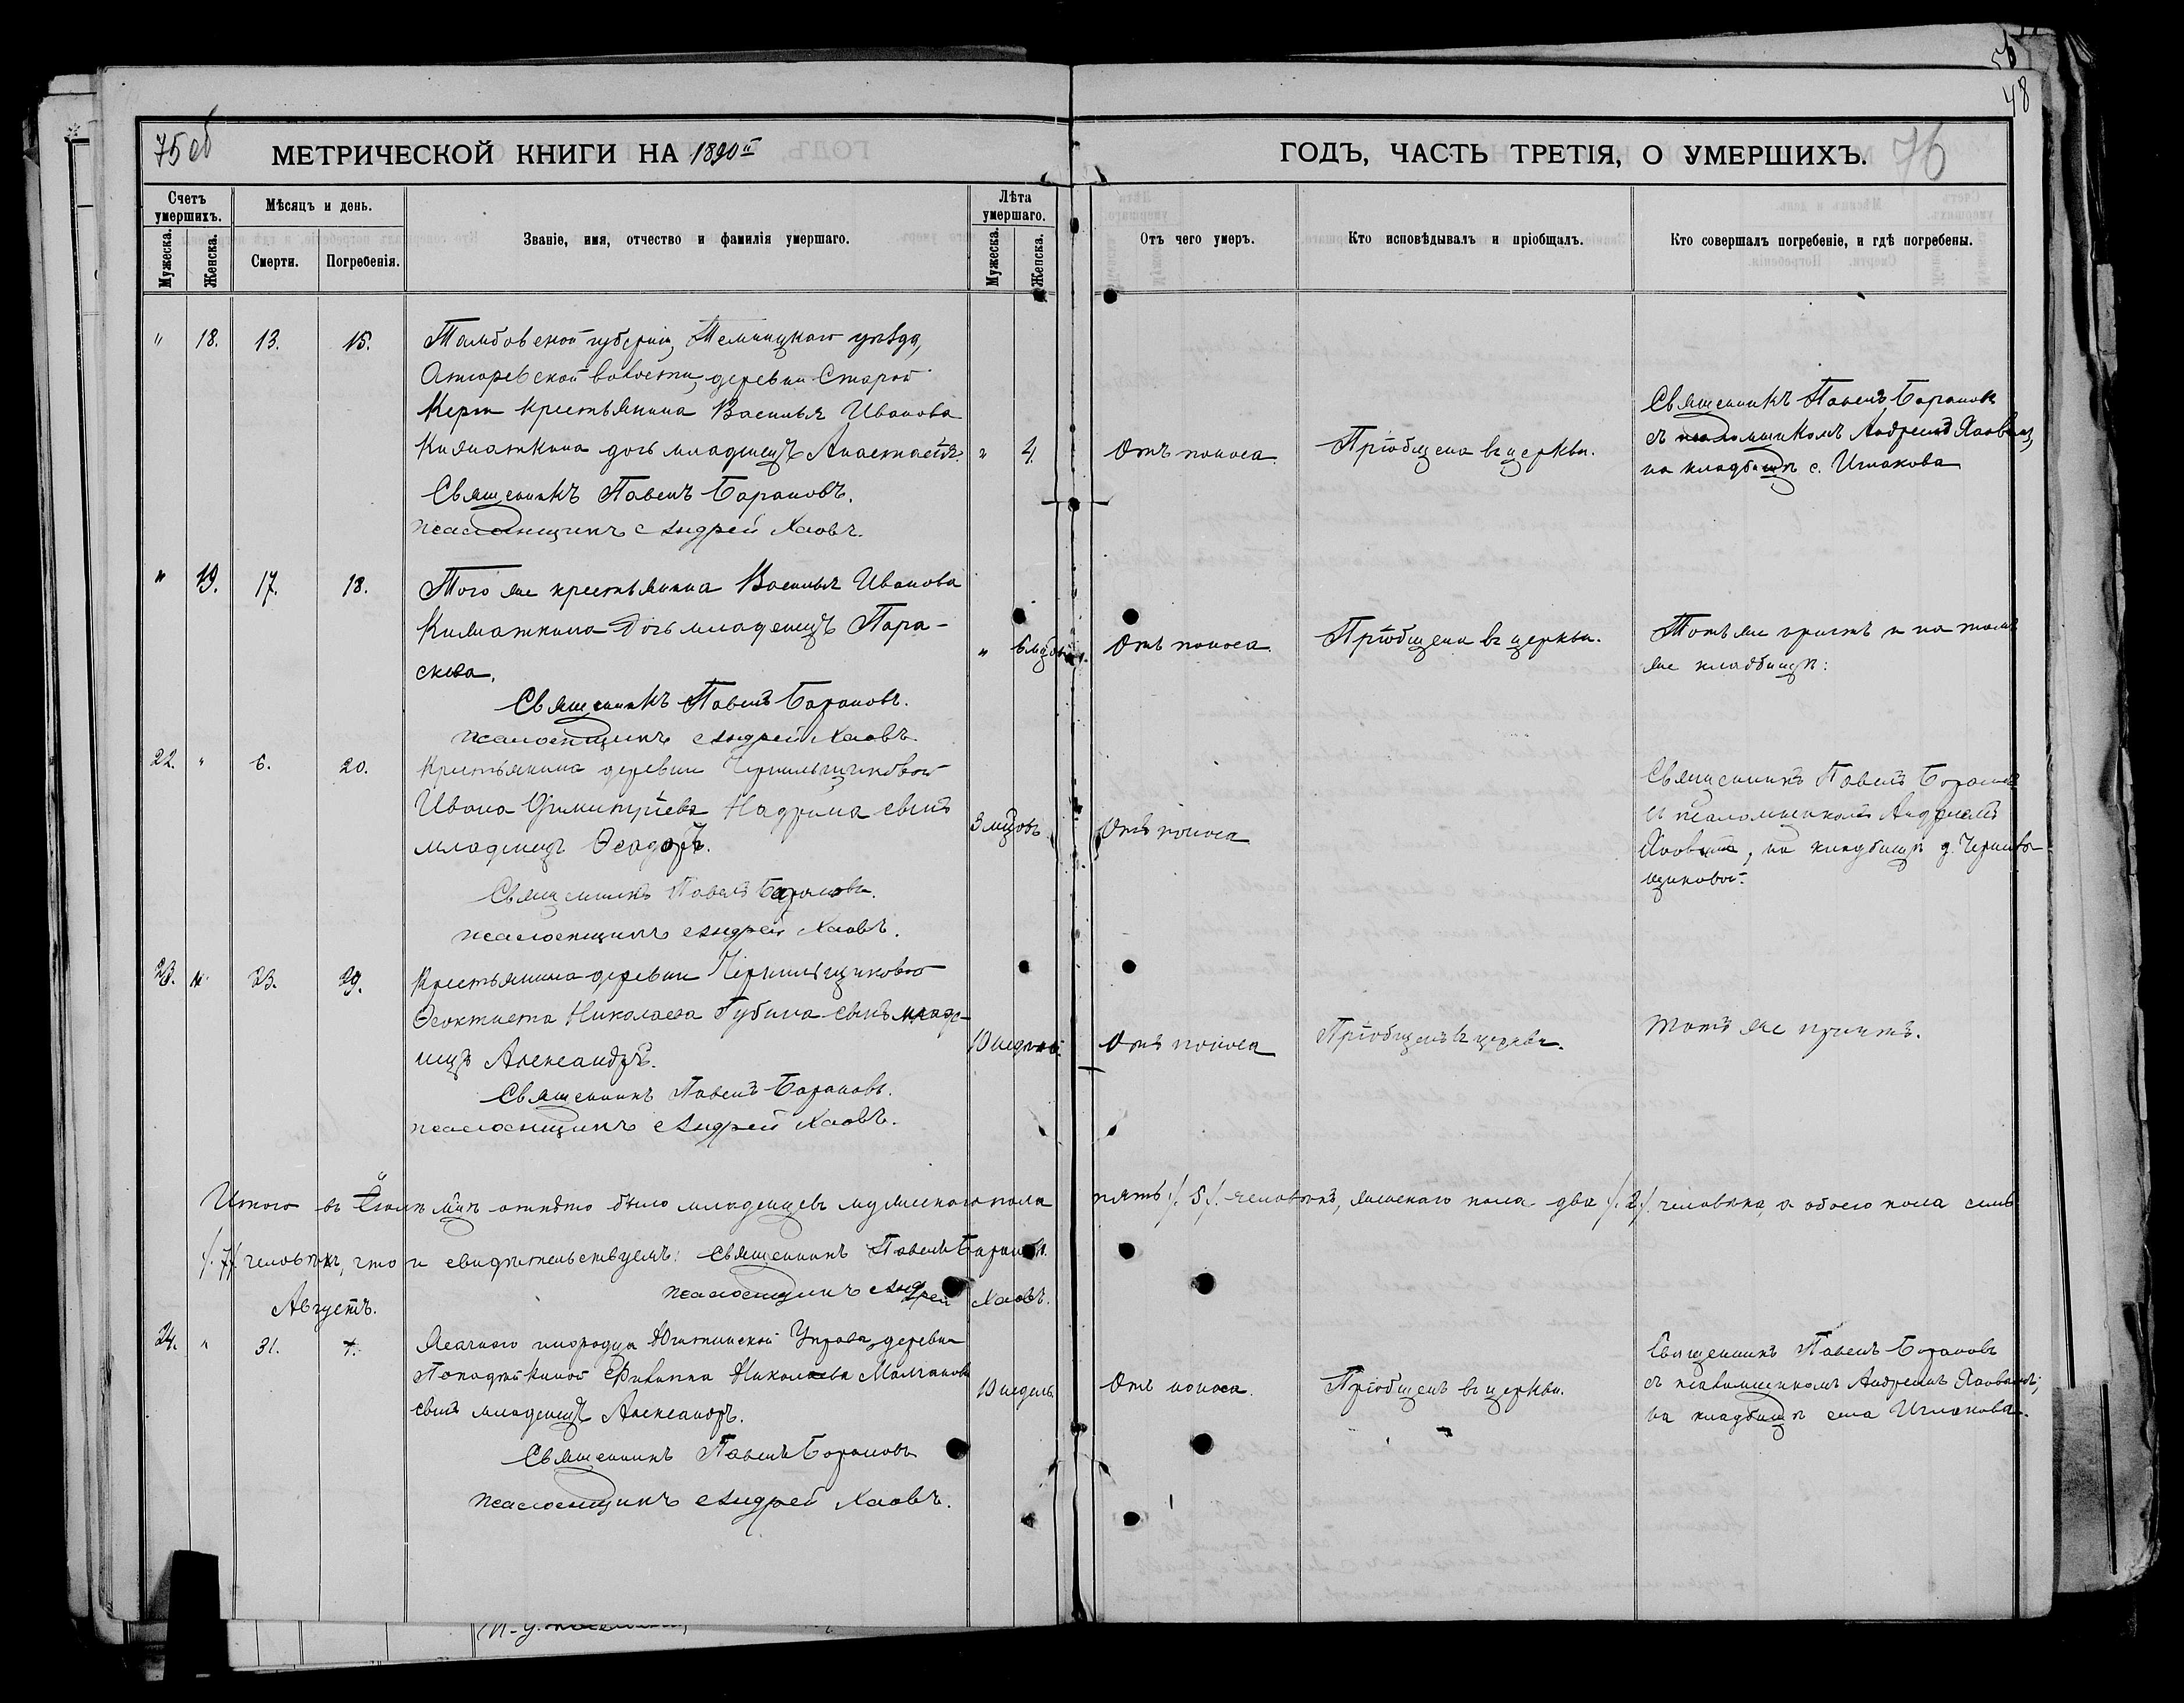 48
75 об
МЕТРИЧЕСКОЙ КНИГИ НА 1890й
ГОДЪ, ЧАСТЬ ТРЕТІЯ, О УМЕРШИХЪ.
76
Счетъ умершихъ.
Мужеска.
Женска.
Мѣсяцъ и день.
Смерти.
Погребенія.
Званіе, имя, отчество и фамилія умершаго.
Лѣта умершаго.
Мужеска.
Женска.
Отъ чего умеръ.
Кто исповѣдывалъ и пріобщалъ.
Кто совершалъ погребеніе, и гдѣ погребены.
" 18. 13. 15.
Тамбовской губерніи, Темницкаго уѣзда,
волости, деревни Старой
крестьянина Василья Иванова
дочь младенецъ Анастасія.
" 4.
Отъ поноса.
Пріобщена въ церкви.
Священникъ Павелъ Барановъ
съ псаломщикомъ Андреемъ
на кладбищѣ с.
Священникъ Павелъ Барановъ.
псаломщикъ Андрей Хаовъ.
" 19. 17. 18.
Того же крестьянина Василья Иванова
дочь младенецъ Пара-
скева.
" 6
Отъ поноса.
Пріобщена въ церкви.
Тотъ же причтъ и на томъ
же кладбищѣ.
Священникъ Павелъ Барановъ.
псаломщикъ Андрей Хаовъ.
22. " 6. 20.
Крестьянина деревни Чернильщиковой
Ивана Димитріева сынъ
младенецъ Ѳеодоръ.
3 мцовъ
Отъ поноса
Священникъ Павелъ Барановъ
съ псаломщикомъ Андреемъ
на кладбищѣ д. Чернил-
щиковой.
Священникъ Павелъ Барановъ.
псаломщикъ Андрей Хаовъ.
23. " 23. 29.
Крестьянина деревни Чернильщиковой
Ѳеоктиста Николаева Губина сынъ младе-
нецъ Александръ.
10 недѣль.
Отъ поноса
Пріобщенъ въ церкви.
Тотъ же причтъ.
Священникъ Павелъ Барановъ.
псаломщикъ Андрей Хаовъ.
Итого въ Іюлѣ мцѣ отпѣто было младенцевъ мужескаго пола пять /.5./ человѣкъ, женскаго пола два /.2./ человѣка, а обоего пола семь
/.7./ человѣкъ, что и свидѣтельствуемъ: Священникъ Павелъ Барановъ.
псаломщикъ Андрей Хаовъ.
Августъ.
24. " 31.
Ясачнаго инородца Управы деревни
Филиппа Николаева Малчанова
сынъ младенецъ Александръ.
10 недѣль.
Отъ поноса.
Пріобщенъ въ церкви.
Священникъ Павелъ Барановъ
съ псаломщикомъ Андреемъ
на кладбищѣ села
Священникъ Павелъ Барановъ
псаломщикъ Андрей Хаовъ.